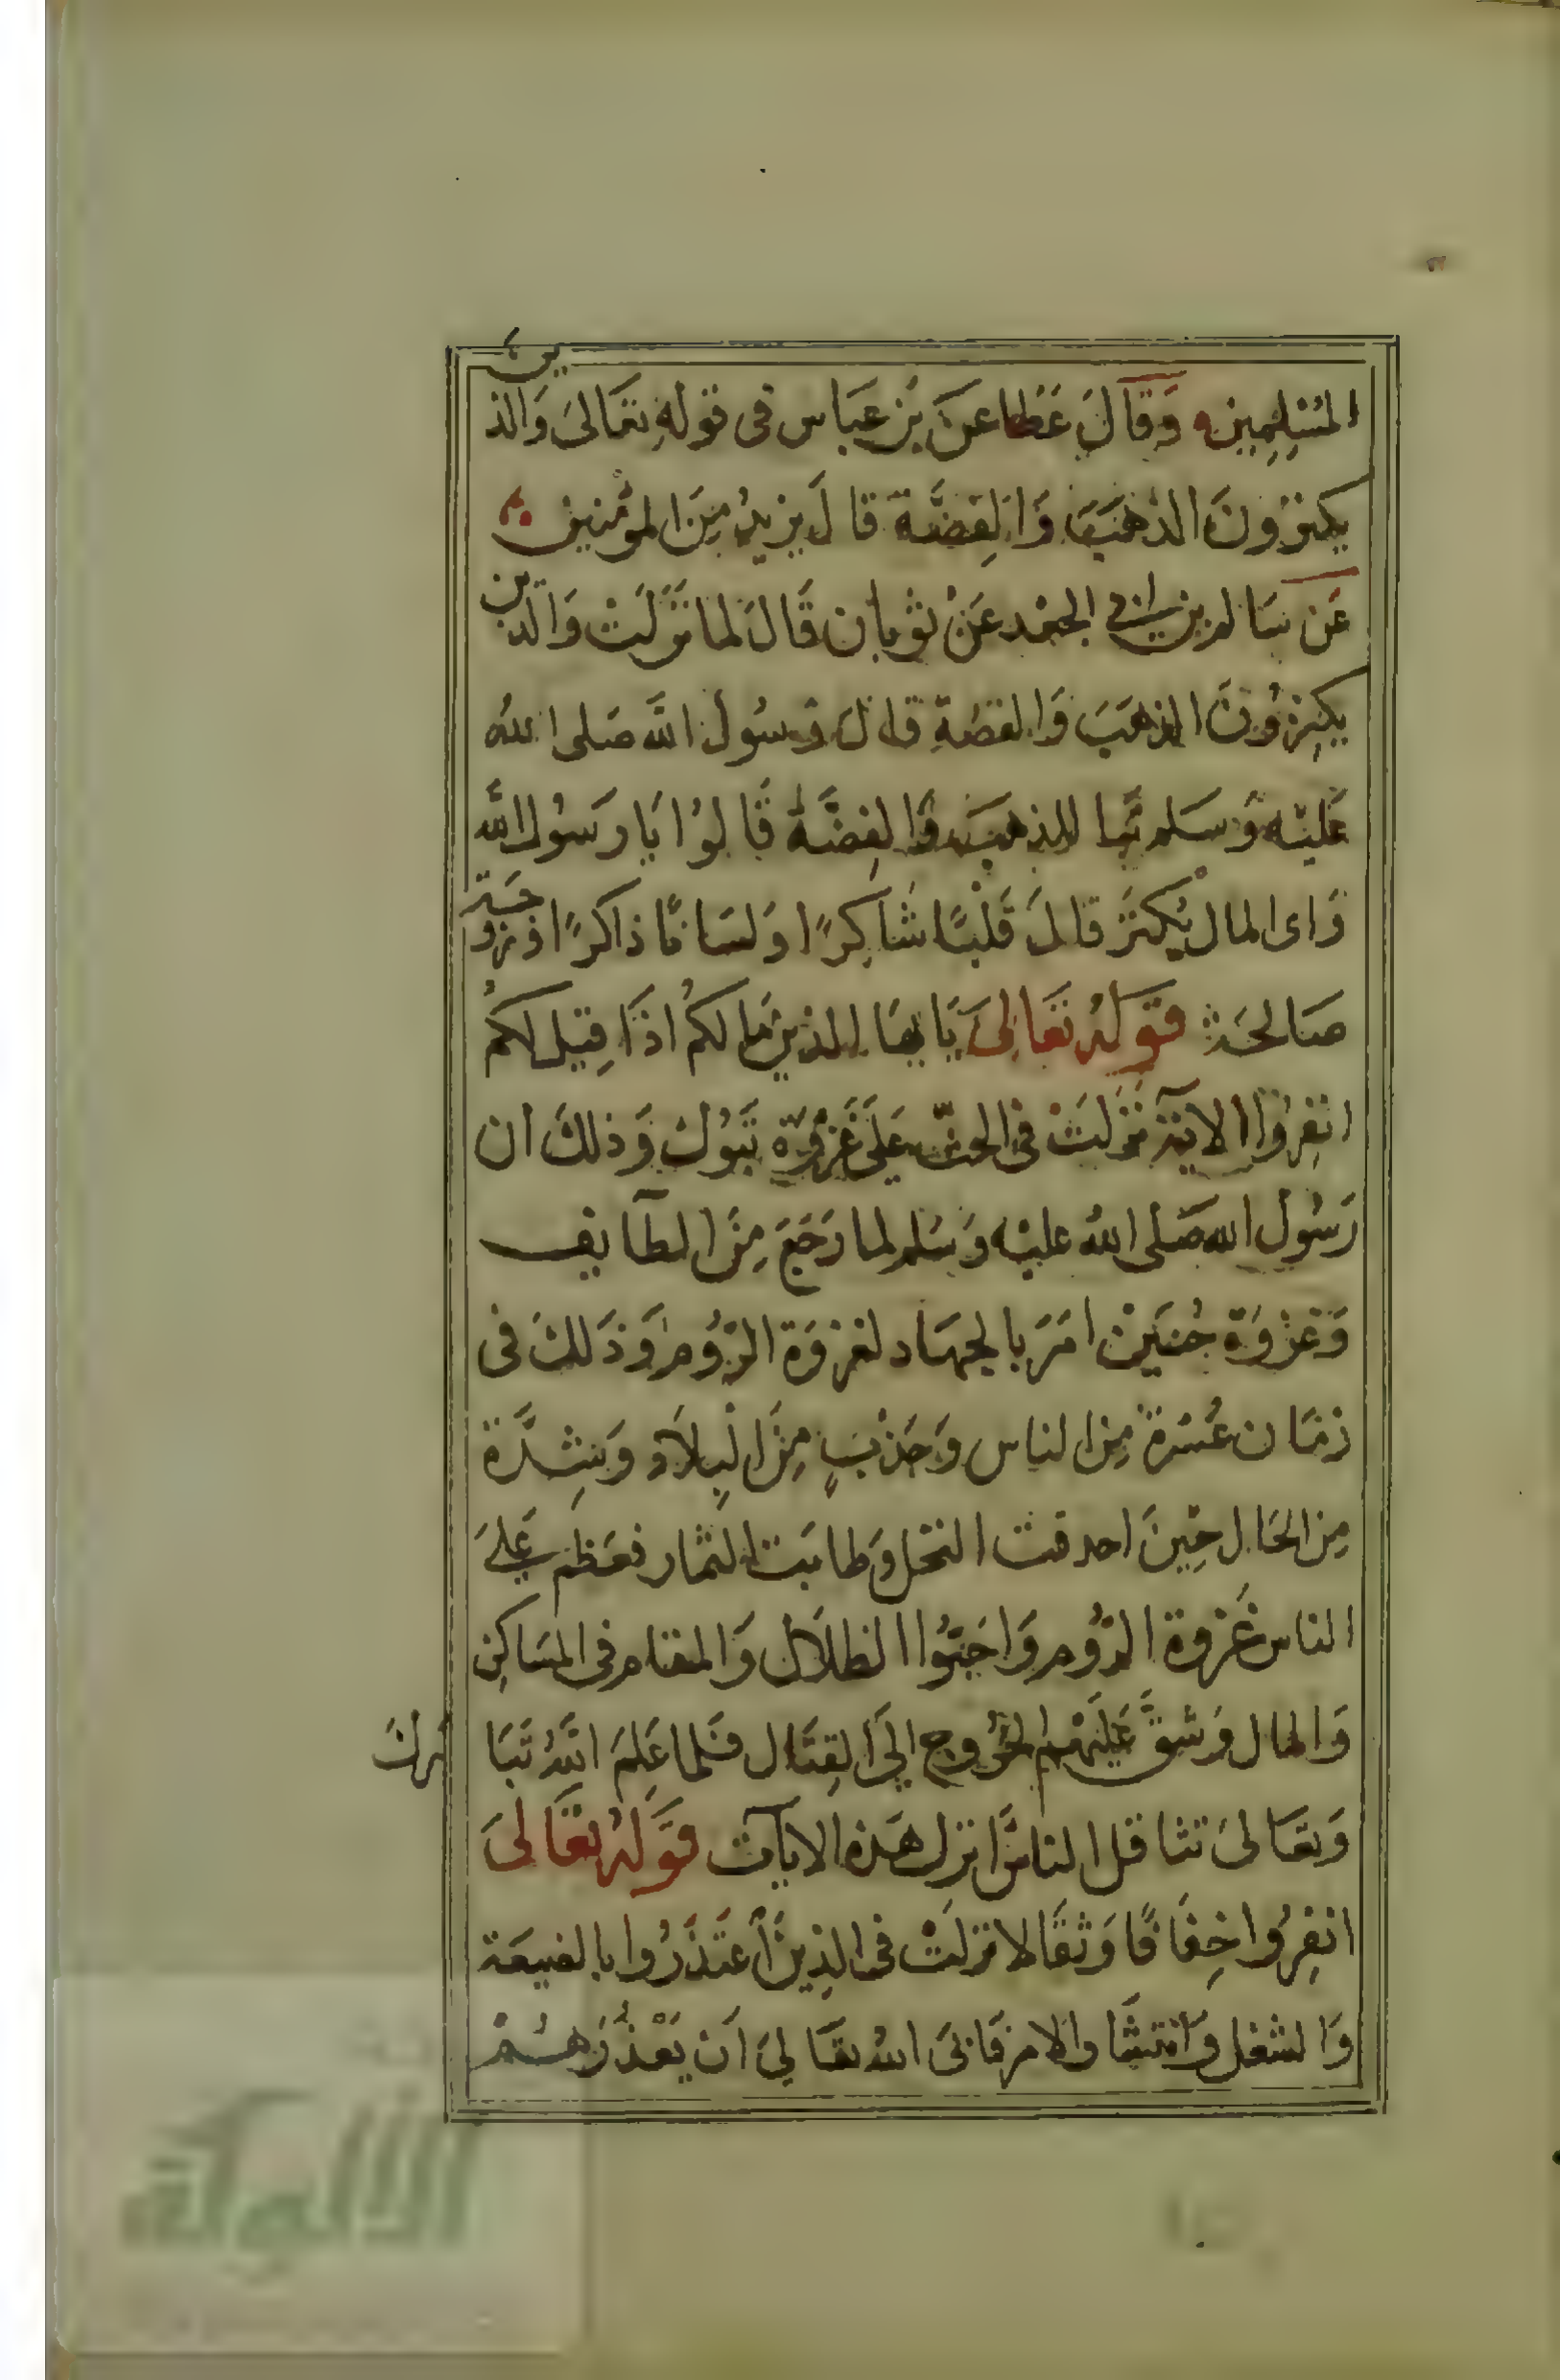 المسلمين وَقَالَ عَطا عَن بن عَباس فى قولهِ تعَالىَ وَالذين
يكنزونَ الذهَبَ وَالفِضَّة قالَ يريدُ مِنَ المؤمنين
عَن سَالم بن ابى الجعْد عَنْ ثوبان قَالَ لما نَزَلَتْ وَالذين
يكنِزُونَ الذهَبَ وَالفضَةِ قالَ رسُول اللَّه صَلى اللهُ
عَليْه وَسَلم تبا للذهَب وَالفِضَّة قَالوُا يَا رَسوُل اللَّه
فَاى المال يُكنَز قالَ قَلْبًا شَاكِرًا وَلسَانًا ذاكرًا اوزوجَة
صَالحَة قوَلهُ تعَالىَ يَايهَا الذينَ مَا لكمُ اذَا قِيل لكمُ
انفِرُوُا الايَة نَزَلَتْ فى الحثّ عَلىَ غَزْوَة تَبوُك وَذلكَ ان
رَسُول الله صَلى اللهُ عليْه وَسَلم لما رَجَعَ مِنَ الطآيف
وَغزْوَة حُنيَنْ امَرَ بالجهَاد لغزوَة الرُّوُم وَذَلكَ فى
زمَان عُسْرَة مِن الناس وَجَدْبٍ مِنَ الْبِلاَد وَشِدَّة
مِن الحَال حِينَ احدقت النخل وَطابَت الثمار فعَظم عَلىَ
الناس غَزوة الرُّوم وَاحَبّوُا الظلاَل وَالمقام فى المسَاكِن
وَالمال وَشقَّ عَليَهْم الخرُوج إلىَ القِتَال فَلما عَلِمَ اللَّهُ تَبَارك
وَتعَالىَ تثاقل الناسَ انزل هَذه الايآت قوَلهُ تعَالىَ
انفِرُوا خِفَافًا وَثقَالا نزلَتْ فى الذِينَ اعتَذَرُوا بالضيعَة
وَالشغل وَانتشَار الامر فَابىَ اللهُ تعَالىَ اَن يَعْذُرَهُمْ
الألوكة